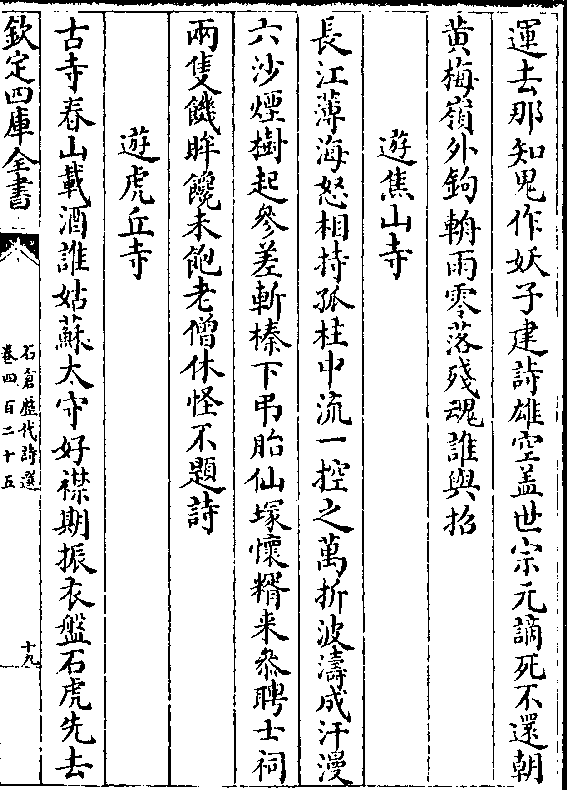 運去那知鬼作妖子建詩雄空蓋世宗元謫死不還朝
黄梅嶺外鉤輈雨零落殘魂誰與招
遊焦山寺
長江薄海怒相持孤柱中流一控之萬折波濤成汗漫
六沙煙樹起參差斬榛下弔胎仙塚懷糈来叅聘士祠
兩隻饑眸饞未飽老僧休怪不題詩
遊虎丘寺
古寺春山載酒誰姑蘇太守好襟期振衣盤石虎先去
欽定四庫全書
石倉歷代詩選
卷四百二十五
十九